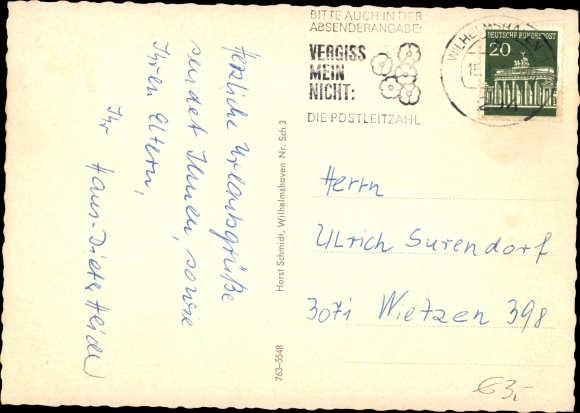 Herzliche Urlaubsgrüße
sendet Ihnen, sowie
Ihren Eltern,
Ihr Hans-Dieter
Horst Schmidt, Wilhelmshaven Nr. Sch 3
763-5548
BITTE AUCH IN DER
ABSENDERANGABE:
VERGISS
MEIN
NICHT:
DIE POSTLEITZAHL
WILHELMSHAVEN
DEUTSCHE BUNDESPOST
20
Herrn
Ulrich Surendorf
3071 Wietzen 398
€3,-